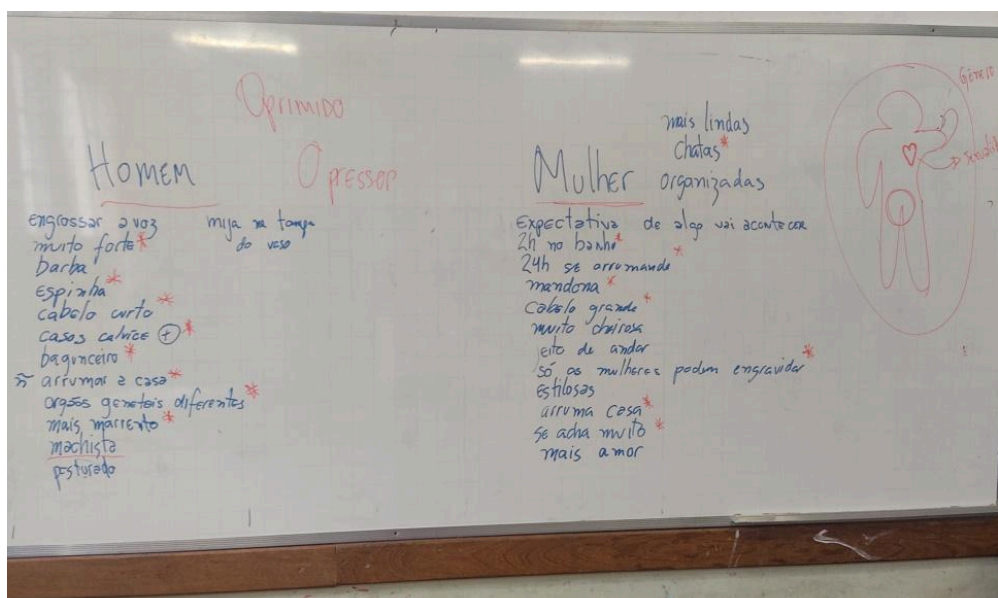 Oprimido
Homem
Opressor
engrossar a voz
mija na tampa
do vaso
muito forte*
barba
Espinha*
cabelo curto*
casos calvice + *
bagunceiro*
ñ arrumar a casa*
orgãos genetais diferentes*
mais marrento*
machista
posturado
mais lindas
chatas*
Mulher organizadas
Expectativa de algo vai acontecer
2h no banho*
24h se arrumando*
mandona*
Cabelo grande*
muito cheirosa
eito de andar
só as mulheres podem engravidar*
Estilosas
arruma casa*
se acha muito*
mais amor
Gênero